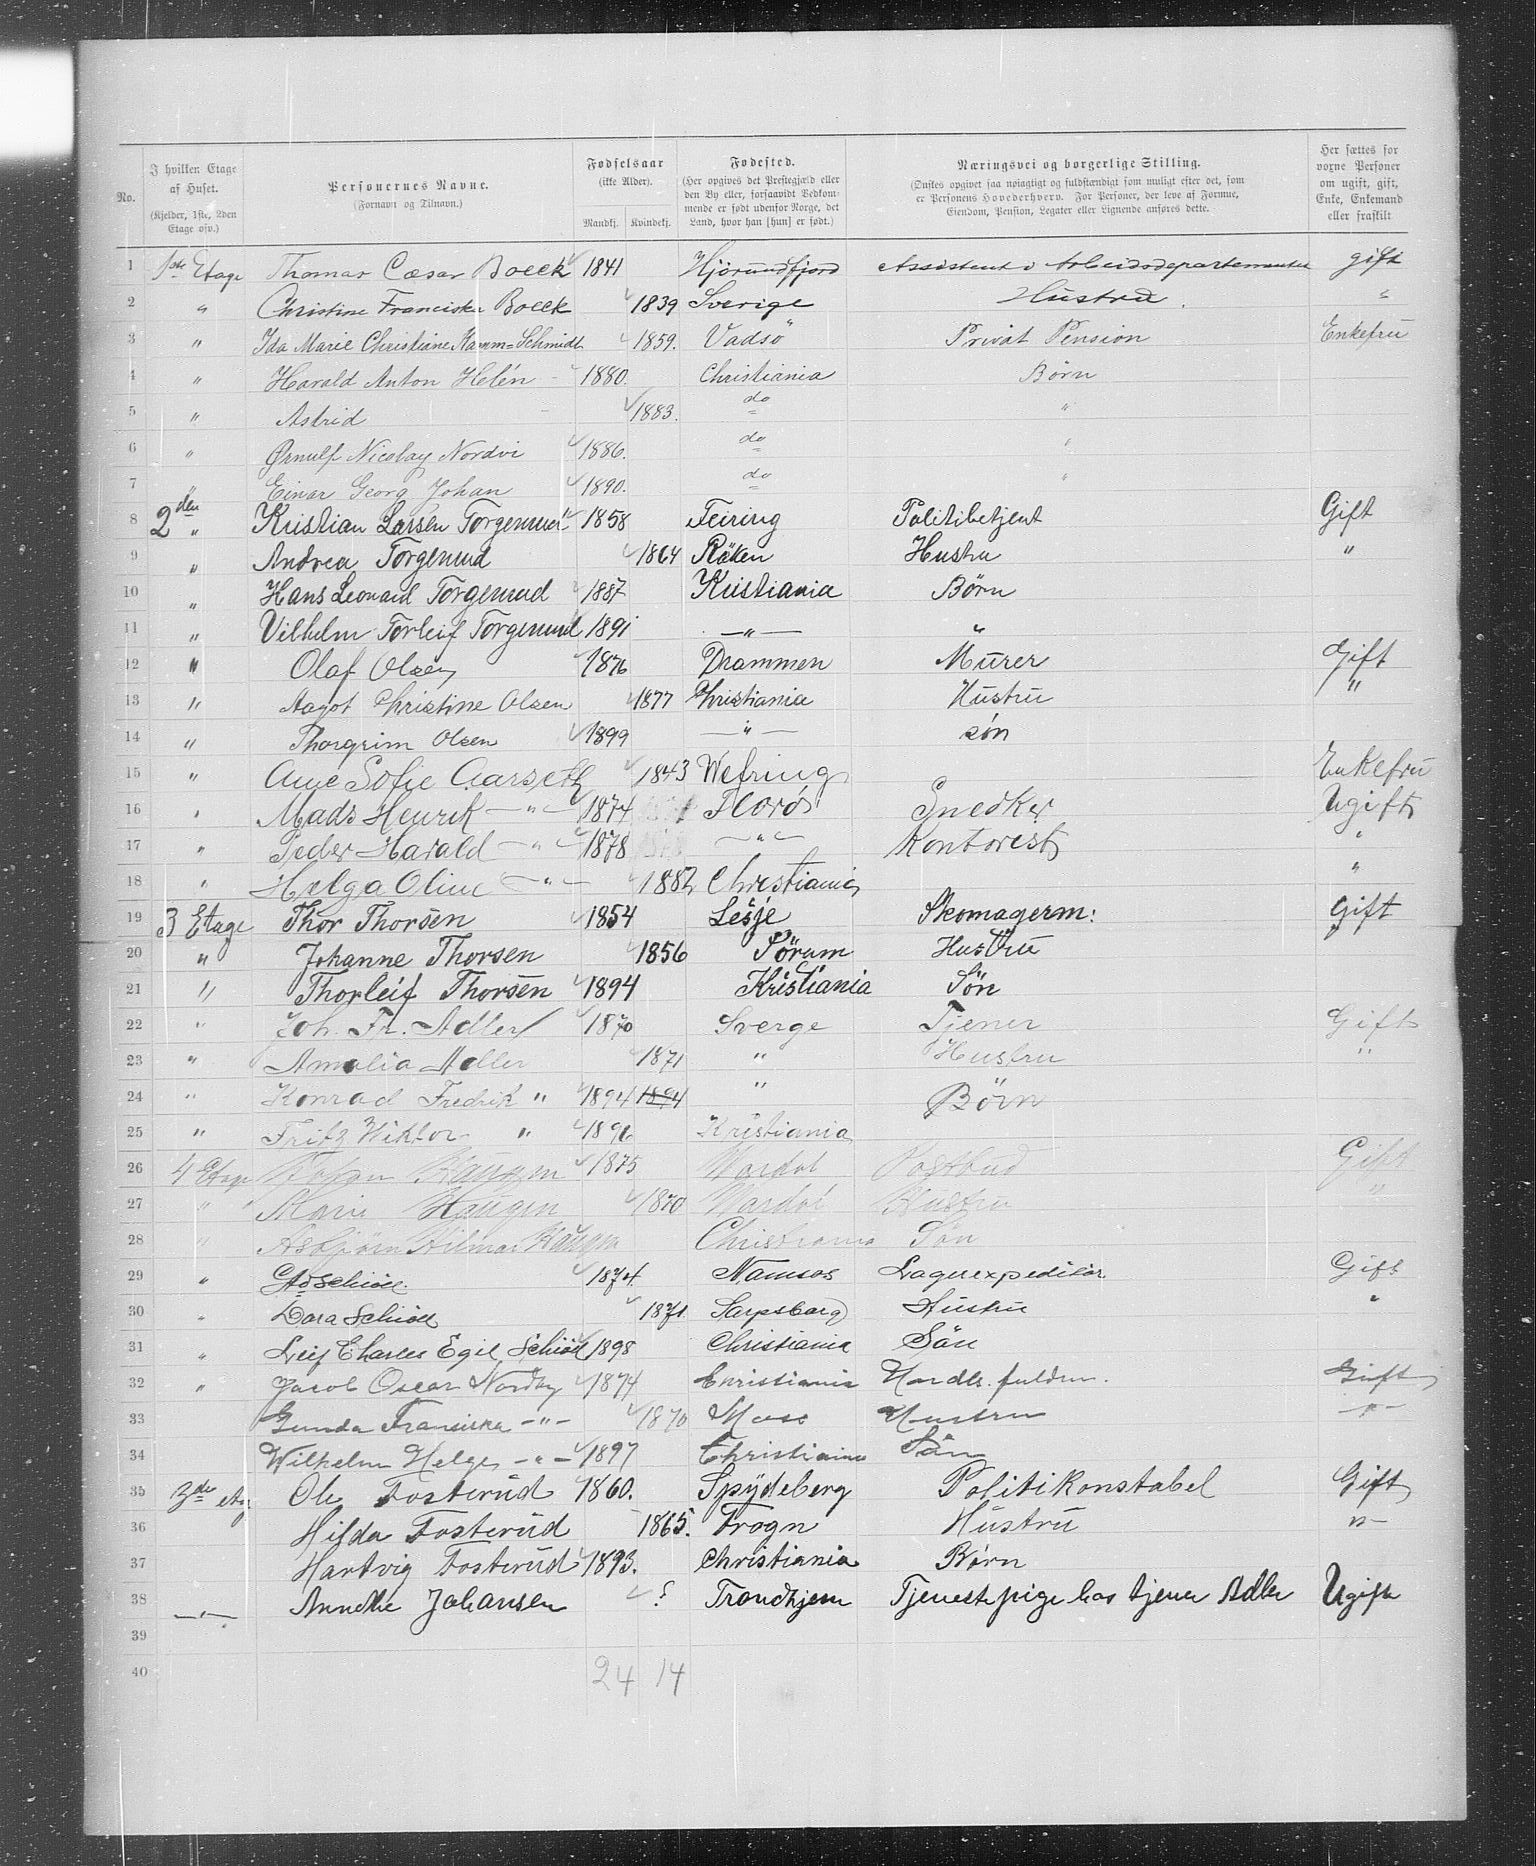 No.
I hvilken Etage af Huset. (Kjelder, 1ste, 2den Etage osv.)
Personernes Navne. (Fornavn og Tilnavn.)
Fødselsaar (ikke Alder). Mandkj. Kvindekj.
Fødested. (Her opgives det Prestegjæld eller den By eller, forsaavidt Vedkommende er født udenfor Norge, det Land, hvor han [hun] er født.)
Næringsvei og borgerlige Stilling. (Ønskes opgivet saa nøiagtigt og fuldstændigt som muligt efter det, som er Personens Hovederhverv. For Personer, der leve af Formue, Eiendom, Pension, Legater eller Lignende anføres dette.
Her sættes for voxne Personer om ugift, gift, Enke, Enkemand eller fraskilt
1 1ste Etage Thomas Cæsar Boeck 1841 Hjörundfjord Assistent i Arbeidsdepartementet gift
2 " Christine Franciska Boeck 1839 Sverige Hustru "
3 " Ida Marie Christiane Kamm=Schmidt 1859. Vadsö Privat Pension Enkefru
4 " Harald Anton Helén 1880. Christiania Børn
5 " Astrid 1883. do "
6 " Ørnulf Nicolay Nordvi 1886. do "
7 " Einar Georg Johan 1890. do "
8 2den " Kristian Larsen Torgerrud 1858 Feiring Politibetjent Gift
9 " Andrea Torgerrud 1864 Röken Hustru "
10 " Hans Leonard Torgerrud 1887 Kristiania Börn
11 " Vilhelm Torleif Torgerrud 1891 — " — "
12 " Olaf Olsen 1876 Drammen Murer Gift
13 " Aagot Christine Olsen 1877 Christiania Hustru "
14 " Thorgrim Olsen 1899 — " — søn
15 " Ane Sofie Aarseth 1843 Wefring Enkefru
16 " Mads Henrik — " — 1874 Florø Snedker Ugift
17 " Peder Harald — " — 1878 — " — Kontorest "
18 " Helga Oline — " — 1882 Christiania "
19 3 Etage Thor Thorsen 1854 Lesje Skomagerm: Gift
20 " Johanne Thorsen 1856 Sörum Hustru "
21 " Thorleif Thorsen 1894 Kristiania Sön
22 " Joh. Fr. Adler 1870 Sverge Tjener Gift
23 " Amalia Adler 1871 " Hustru "
24 " Konrad Fredrik " 1894 1894 " Börn
25 " Fritz Wiktor " 1896 Kristiania
26 4 Etage Johan Haugen 1875 Mardal Postbud Gift
27 " " Marie Haugen 1870 Mardal Hustru "
28 " Asbjörn Hilmar Haugen Christiania Sön
29 " Schiöll 1874. Namsos Lagerexpeditör Gift
30 " Dora Schiöll 1871 Sarpsborg Hustru "
31 " Leif Charles Egil Schiöll 1898 Christiania Sön
32 " Jacob Oscar Nordby 1874 Christiania Handls. fuldm. Gift
33 Gunda Fransiska — " — 1870 Moss Hustru — " —
34 Wilhelm Helge — " — 1897 Christiania Sön
35 3die etg Ole Fosterud 1860. Spydeberg Politikonstabel Gift
36 Hilda Fosterud 1865. Frogn Hustru — " —
37 Hartvig Fosterud 1893. Christiania Børn
38 — " — Annethe Johansen ? Trondhjem Tjenestepige hos tjener Adler Ugift
39
40 24 14